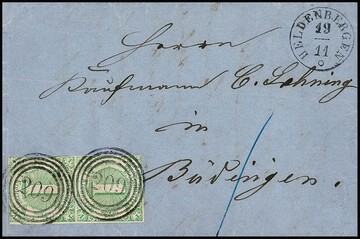 HELDENBERGEN
19
11
Herrn
Kaufmann C. Lehning
in
Büdingen.
209 209